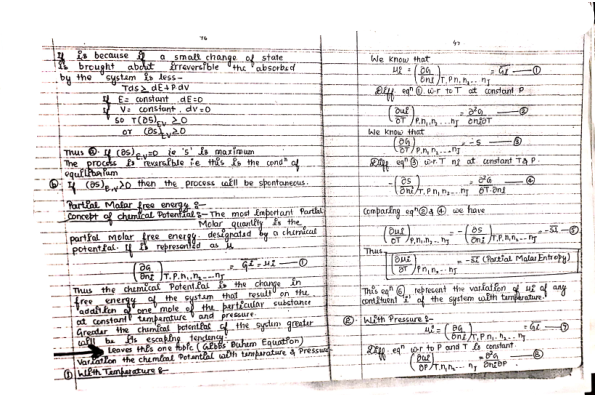 76
It is because if a small change of state
is brought about irreversible the absorbed
by the system is less-
Tds ≥ dE+Pdv
If E = constant dE=0
If V = constant. dv=0
so T(∂S)E,V ≥ 0
or (∂S)E,V ≥ 0
Thus @. If (∂S)E,V =0 ie 's' is maximum
The process is reversible i.e this is the condⁿ of
equilibrium
ⓑ If (∂S)E,V > 0 then the process will be spontaneous.
Partial Molar free energy :-
Concept of chemical Potential :- The most important Partial
Molar quantity is the
partial Molar free energy. designated by a chemical
potential. it is represented as μ
(∂G/∂ni)T,P,n1,n2...nJ = Gi = μi —①
Thus the chemical Potential is the change in
free energy of the system that result on the
addition of one mole of the particular substance
at constant temperature and pressure.
Greater the chemical potential of the system greater
will be its escaping tendency.
Leaves this one topic (Gibbs Duhem Equation)
Variation the chemical Potential with temperature & Pressure
① With Temperature :-
We know that
μi = (∂G/∂ni)T,P,n1,n2...nJ = Gi —①
Diff eqⁿ ① w.r to T at constant P
(∂μi/∂T)P,n1,n2...nJ = ∂²G/∂ni∂T —②
We know that
(∂G/∂T)P,n1,n2...nJ = -S —③
Diff eqⁿ ③ w.r.T ni at constant T & P.
-(∂S/∂ni)T,P,n1,n2...nJ = ∂²G/∂T.∂ni —④
Comparing eqⁿ ② & ④ we have
(∂μi/∂T)P,n1,n2...nJ = -(∂S/∂ni)T,P,n1,n2...nJ = -Si —⑤
Thus
(∂μi/∂T)P,n1,n2...nJ = -Si (Partial Molar Entropy)
This eqⁿ ⑥ represent the variation of μi of any
contituent 'i' of the system with temperature.
② With Pressure :-
μi = (∂G/∂ni)T,P,n1,n2...nJ = Gi —⑦
Diff. eqⁿ w.r to P and T is constant.
(∂μi/∂P)T,n1,n2...nJ = ∂²G/∂ni∂P —⑧